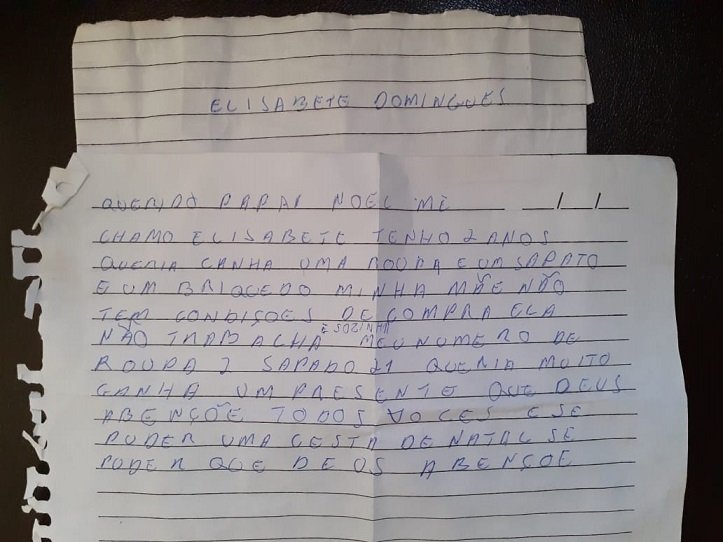 ELISABETE DOMINGUES
QUERIDO PAPAI NOEL ME / /
CHAMO ELISABETE TENHO 2 ANOS
QUERIA GANHA UMA ROUPA E UM SAPATO
E UM BRIQUEDO MINHA MÃE NÃO
TEM CONDIÇOES DE COMPRA ELA
E SOZINHA
NÃO TRABALHA MEU NUMERO DE
ROUPA 2 SAPADO 21 QUERIA MUITO
GANHA UM PRESENTE QUE DEUS
ABENÇÕE TODOS VOCES E SE
PUDER UMA CESTA DE NATAL SE
PUDER QUE DE OS ABENÇOE